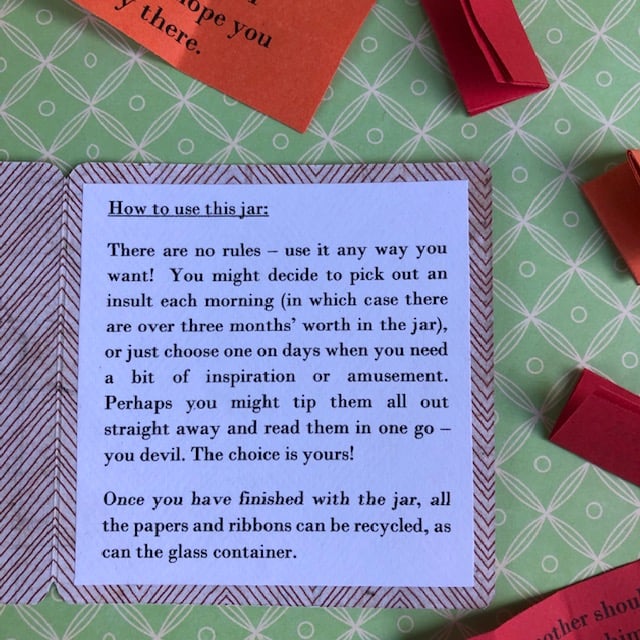 ope you
y there.
How to use this jar:
There are no rules – use it any way you
want! You might decide to pick out an
insult each morning (in which case there
are over three months' worth in the jar),
or just choose one on days when you need
a bit of inspiration or amusement.
Perhaps you might tip them all out
straight away and read them in one go –
you devil. The choice is yours!
Once you have finished with the jar, all
the papers and ribbons can be recycled, as
can the glass container.
other shoul